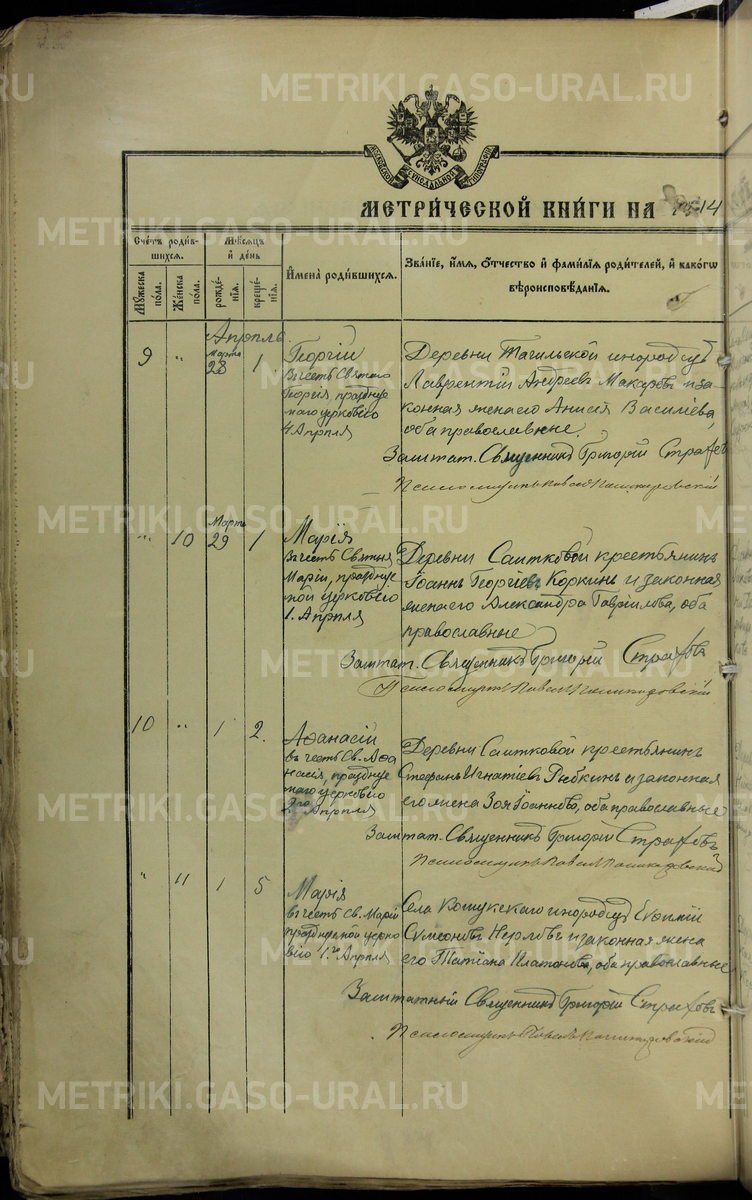 METRIKI.GASO-URAL.RU
МОСКОВСКОЙ СУНОДАЛЬНОЙ ТИПОГРАФІИ
МЕТРИЧЕСКОЙ КНИГИ НА 1914
Счетъ родившихся.
Мѣсяцъ и день
Имена родившихся.
Званіе, имя, отчество и фамилія родителей, и какогѡ вѣроисповѣданія.
Мужеска пола.
Женска пола.
рожденія.
крещенія.
Апрѣль.
9 " Марта 28 1
Георгій
въ честь Святаго
Георгія, праздnуе
маго церковію
4 Апрѣля
Деревни Тагильской инородецъ
Лаврентій Андреевъ Макаровъ и за
конная жена его Анисія Василіева,
оба православные.
Заштат. Священникъ Григорій Страховъ
Псаломщикъ Павелъ
" 10 Марта 29 1
Марія
въ честь Святыя
Маріи, празднуе
мой церковію
1. Апрѣля
Деревни Саитковой крестьянинъ
Іоаннъ Георгіевъ Коркинъ и законная
жена его Александра Гавріилова, оба
православные
Заштат. Священникъ Григорій Страховъ
Псаломщикъ Павелъ
10 " 1 2.
Аѳанасій
въ честь Св. Аѳа
насія, празднуе
маго церковію
2го Апрѣля
Деревни Саитковой крестьянинъ
Стефанъ Игнатіевъ Рябкинъ и законная
его жена Зоя Іоаннова, оба православные
Заштат. Священникъ Григорій Страховъ
Псаломщикъ Павелъ
" 11 1 5
Марія
въ честь Св. Маріи
празднуемой церко
вію 1.го Апрѣля
Села Кошукскаго инородецъ Евѳимій
Сѵмеоновъ и законная жена
его Татіана Платонова, оба православные
Заштатный Священникъ Григорій Страховъ
Псаломщикъ Павелъ